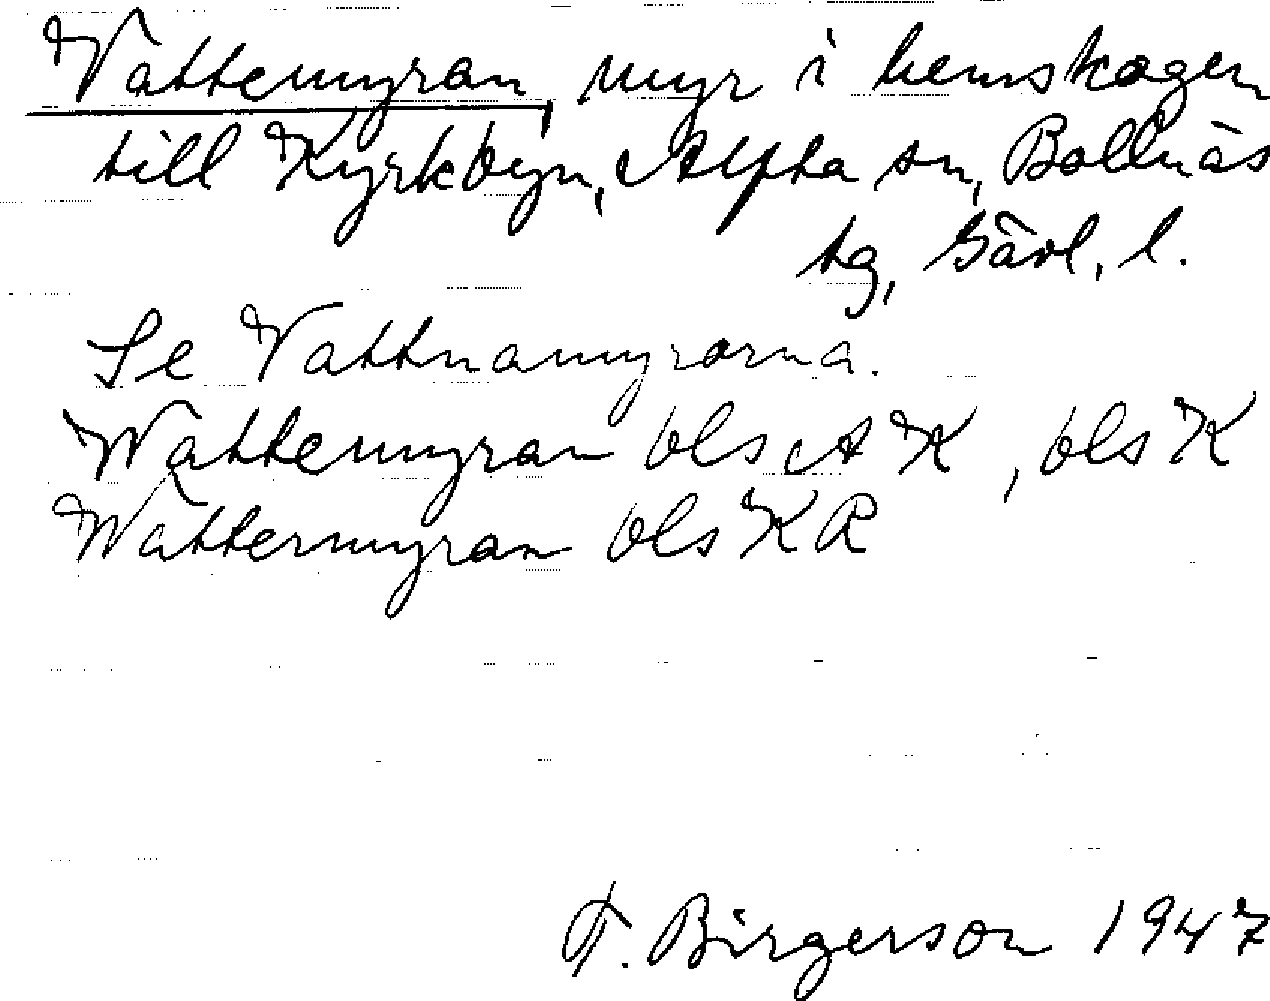 Vattemyran, myr i hemskogen
till Kyrkbyn, Alfta sn, Bollnäs
tg, Gävl. l.
Se Vattnamyrorna.
Wattemyran bls A K, bls K
Wattermyran bls K R
F. Birgerson 1947